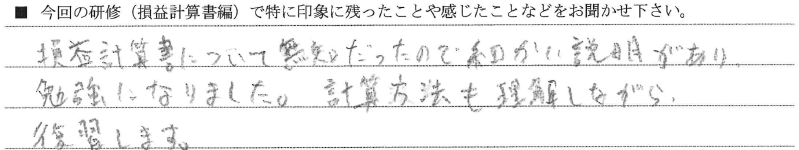 ■ 今回の研修（損益計算書編）で特に印象に残ったことや感じたことなどをお聞かせ下さい。
損益計算書について無知だったので細かい説明があり、
勉強になりました。計算方法も理解しながら、
復習します。